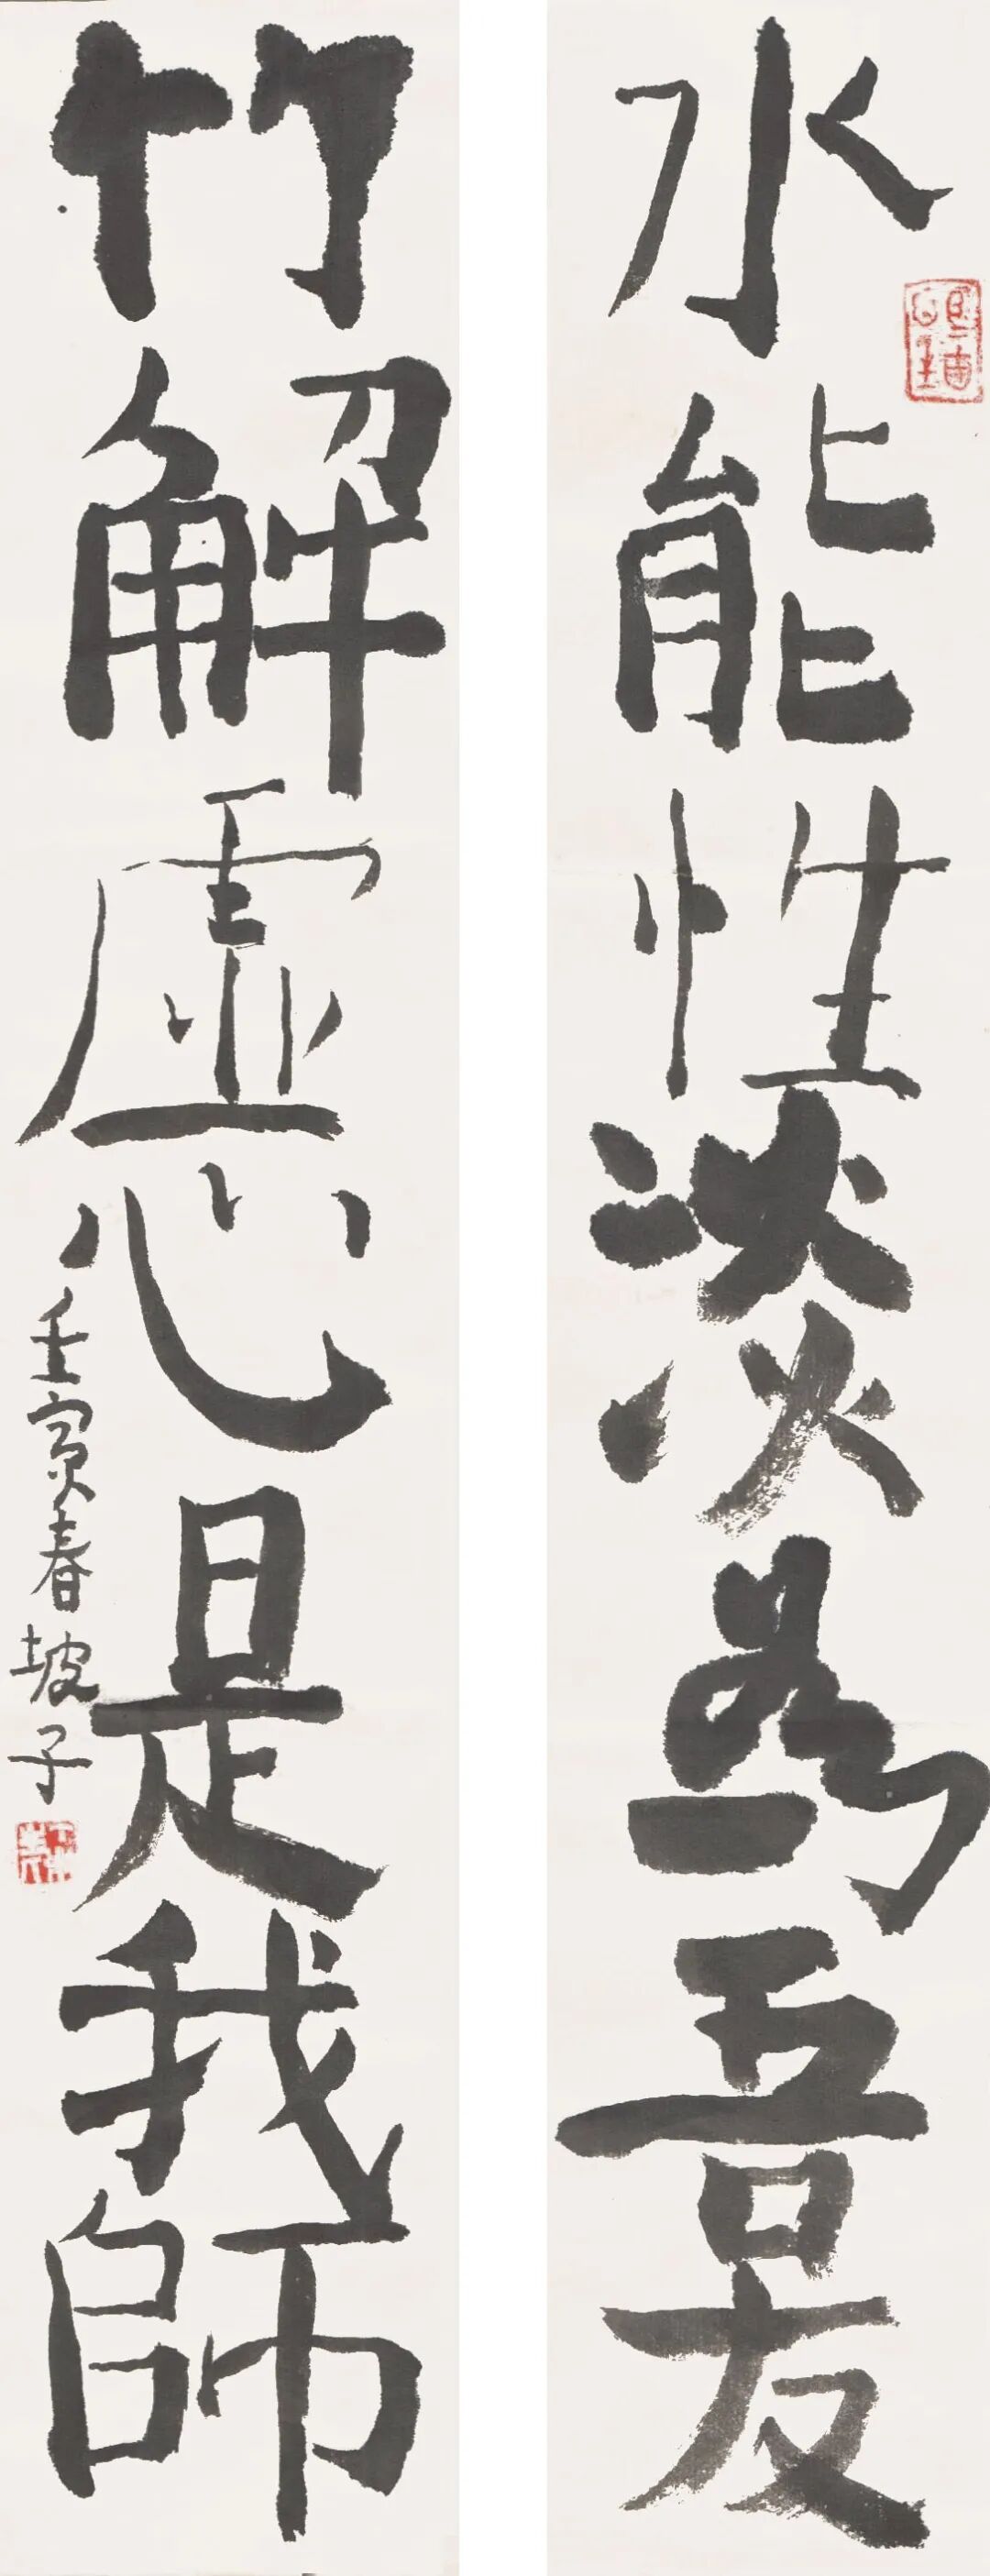 水能性淡為吾友
竹解虛心是我師
壬寅春坡子